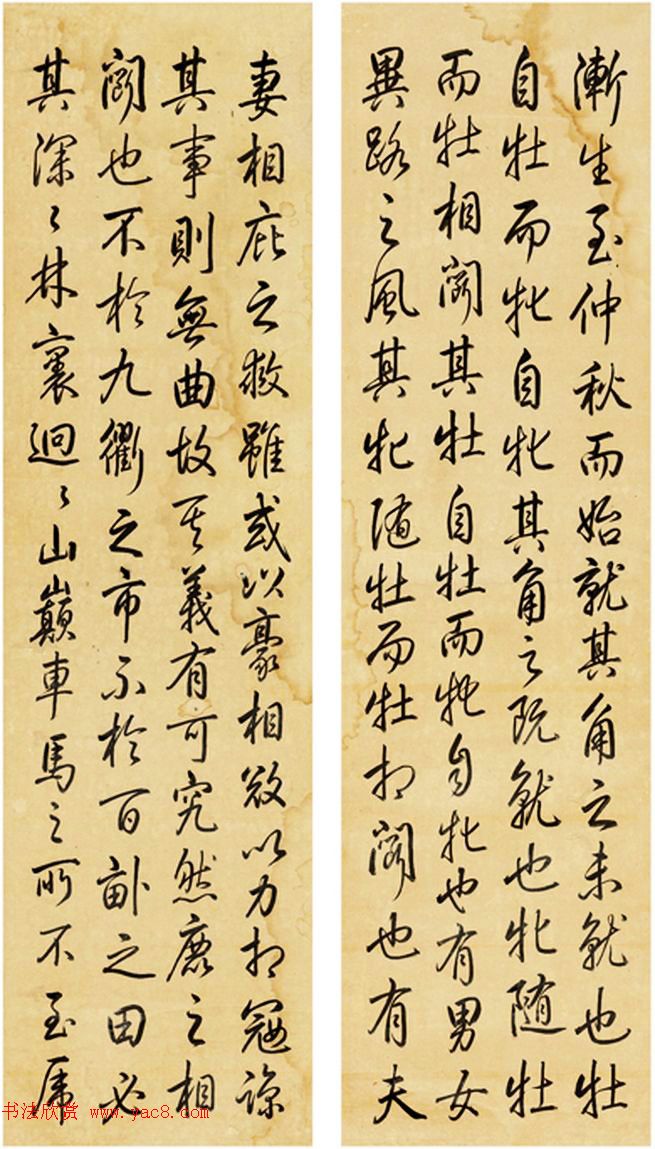 漸生至仲秋而始就其角之未就也牡
自牡而牝自牝其角之既就也牝随牡
而牡相闘其牡自牡而牝自牝也有男女
異路之風其牝随牡而牡相闘也有夫
妻相庇之救雖或以豪相欺以力相寇諒
其事則無曲故其義有可究然鹿之相
闘也不於九衢之市不於百畝之田必
其深〻林裏迥〻山巔車馬之所不至
书法欣赏 www.yac8.com